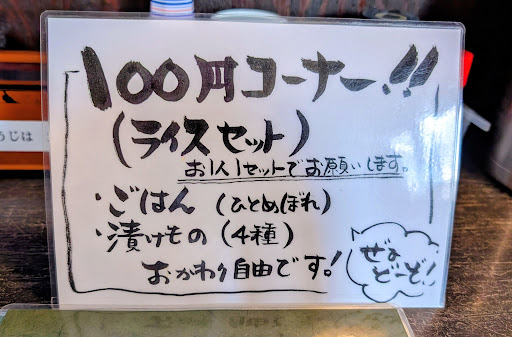 100円コーナー!!
(ライスセット)
お1人1セットでお願いします。
・ごはん(ひとめぼれ)
・漬けもの(4種)
おかわり自由です!
ぜひ
どーぞ!
うじは